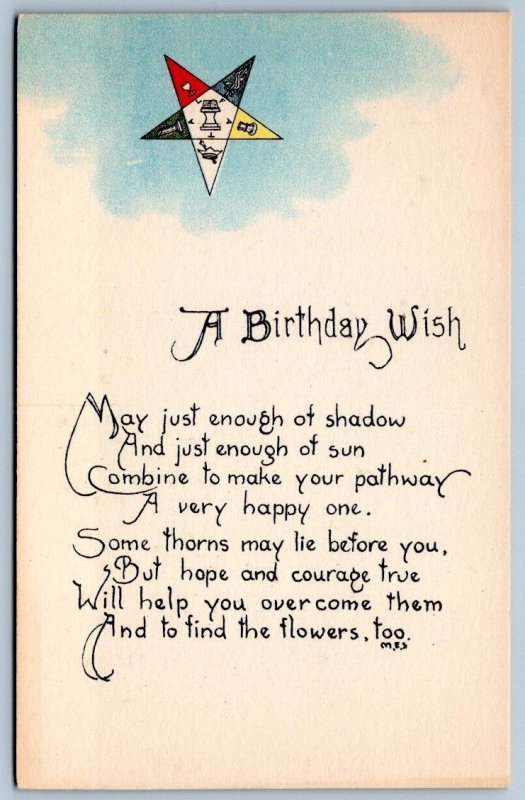 A Birthday Wish
May just enough of shadow
And just enough of sun
Combine to make your pathway
A very happy one.
Some thorns may lie before you,
But hope and courage true
Will help you overcome them
And to find the flowers, too.
M.E.S